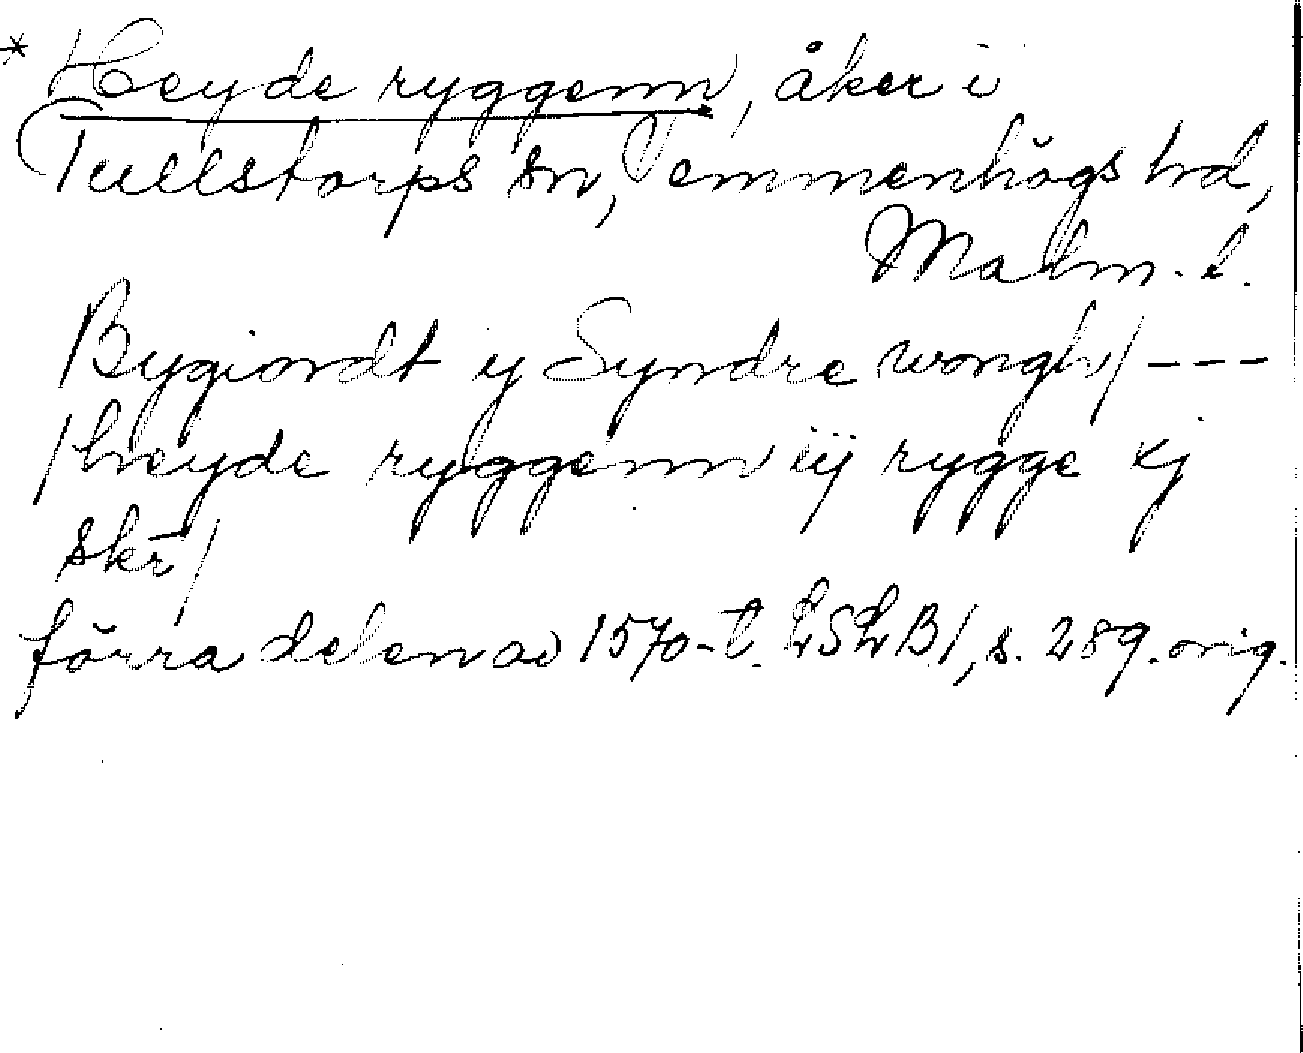 * Heyde ryggenn, åker i
Tullstorps sn, Vemmenhögs hd,
Malm. l.
Bygiordt ij Syndre wongh/ - - -
/heyde ryggenn iij rygge xj
skr/
förra delen av 1570-t. LSLB1, s. 289. orig.